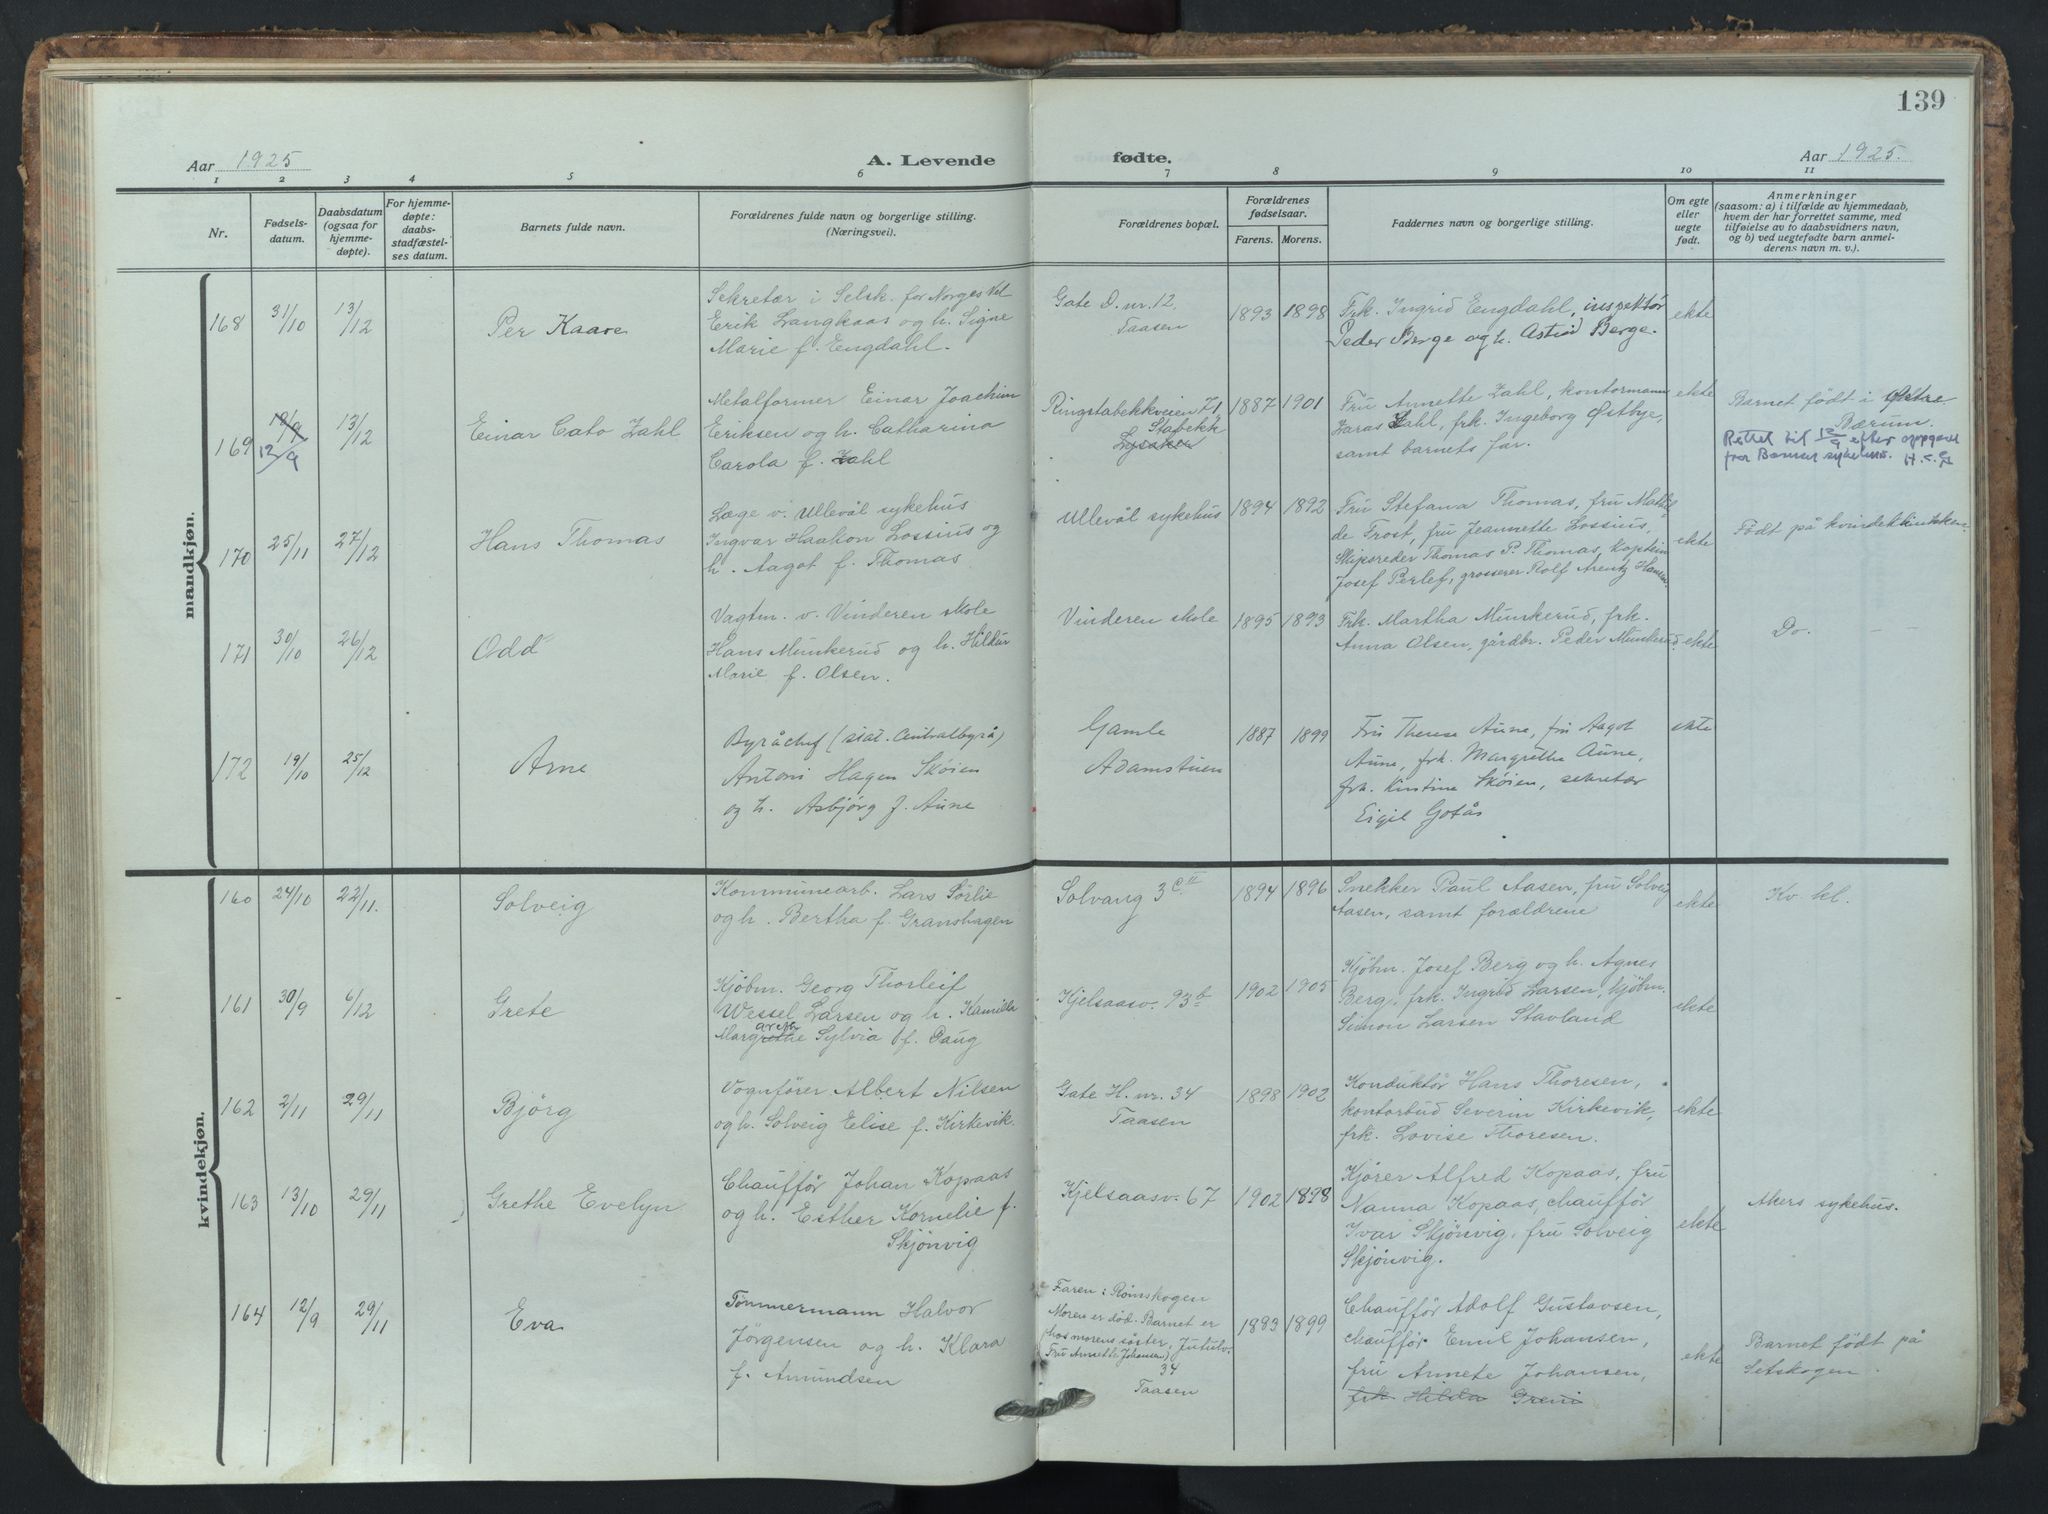 139
Aar 1925
A. Levende
fødte.
Aar 1925.
1 2 3 4 5 6 7 8 9 10 11
Nr.
Fødsels-
datum.
Daabsdatum
(ogsaa for
hjemme-
døpte).
For hjemme-
døpte:
daabs-
stadfæstel-
ses datum.
Barnets fulde navn.
Forældrenes fulde navn og borgerlige stilling.
(Næringsvei).
Forældrenes bopæl.
Forældrenes
fødselsaar.
Farens. Morens.
Faddernes navn og borgerlige stilling.
Om egte
eller
uegte
født.
Anmerkninger
(saasom: a) i tilfælde av hjemmedaab,
hvem der har forrettet samme, med
tilføielse av to daabsvidners navn,
og b) ved uegtefødte barn anmel-
derens navn m. v.).
mandkjøn.
168
31/10
13/12
Per Kaare
Sekretær i Selsk. for Norges Vel
Erik Langkaas og h. Signe
Marie f. Engdahl.
Gate D. nr. 12
Taasen
1893
1898
Frk. Ingrid Engdahl, inspektør
Peder Berge og h. Astrid Berge.
ekte
169
18/9
12/9
13/12
Einar Cato Zahl
Metalformer Einar Joachim
Eriksen og h. Catharina
Carola f. Zahl
Ringstabekkveien 71
Stabekk
Lysaker
1887
1901
Fru Annette Zahl, kontormann
Zaras Zahl, frk. Ingeborg Østbye,
samt barnets far.
ekte
Barnet født i Østre
Bærum.
Rettet til 12/9 efter oppgave
fra Bærum sykehus. H. S.
170
25/11
27/12
Hans Thomas
Læge v. Ullevål sykehus
Ingvar Haakon Lossius og
h. Aagot f. Thomas
Ullevål sykehus
1894
1892
Fru Stefana Thomas, fru Mathil
de Frost, fru Jeannette Lossius,
Skipsreder Thomas P. Thomas, Kaptein
Josef Perlef, grosserer Rolf Arentz Hansen
ekte
Født på kvindeklinikken.
171
30/10
26/12
Odd
Vagtm. v. Vinderen skole
Hans Munkerud og h. Hildur
Marie f. Olsen.
Vinderen skole
1895
1893
Frk. Martha Munkerud, frk.
Anna Olsen, gårdbr. Peder Munkerud.
ekte
Do. — —
172
19/10
25/12
Arne
Byråchef (stat. Centralbyrå)
Antoni Hagen Skøien
og h. Asbjørg f. Aune
Gamle
Adamstuen
1887
1899
Fru Therese Aune, fru Aagot
Aune, frk. Margrethe Aune,
frk. Kirstine Skøien, sekretær
Eigil Gotås
ekte
kvindekjøn.
160
24/10
22/11.
Solveig
Kommunearb. Lars Sørlie
og h. Bertha f. Granshagen
Solvang 3 c II
1894
1896
Snekker Paul Aasen, fru Solveig
Aasen, samt forældrene
ekte
Kv. kl.
161
30/9
6/12
Grete
Kjøbm. Georg Thorleif
Wessel Larsen og h. Kamilla
Margrethe Sylvia f. Gaug
Kjelsaasv. 93b
1902
1905
Kjøbm. Josef Berg og h. Agnes
Berg, frk. Ingrid Larsen, kjøbm.
Simon Larsen Stavland
ekte
162
2/11
29/11
Bjørg
Vognfører Albert Nilsen
og h. Solveig Elise f. Kirkevik.
Gate H. nr. 34
Taasen
1898
1902
Konduktør Hans Thoresen,
kontorbud Severin Kirkevik,
frk. Lovise Thoresen.
ekte
163
13/10
29/11
Grethe Evelyn
Chauffør Johan Kopaas
og h. Esther Kornelie f.
Skjønvig
Kjelsaasv. 67
1902
1898
Kjører Alfred Kopaas, fru
Nanna Kopaas, chauffør
Ivar Skjønvig, fru Solveig
Skjønvig.
ekte
Akers sykehus.
164
12/9
29/11
Eva
Tømmermann Halvor
Jørgensen og h. Klara
f. Amundsen
Faren i Rømskogen
Moren er død. Barnet er
hos morens søster,
Fru Annette Johansen), Jutulv.
34
Taasen
1893
1899
Chauffør Adolf Gustavsen,
chauffør Emil Johansen,
fru Annete Johansen,
frk. Hilda Greni
ekte
Barnet født på
Setskogen.